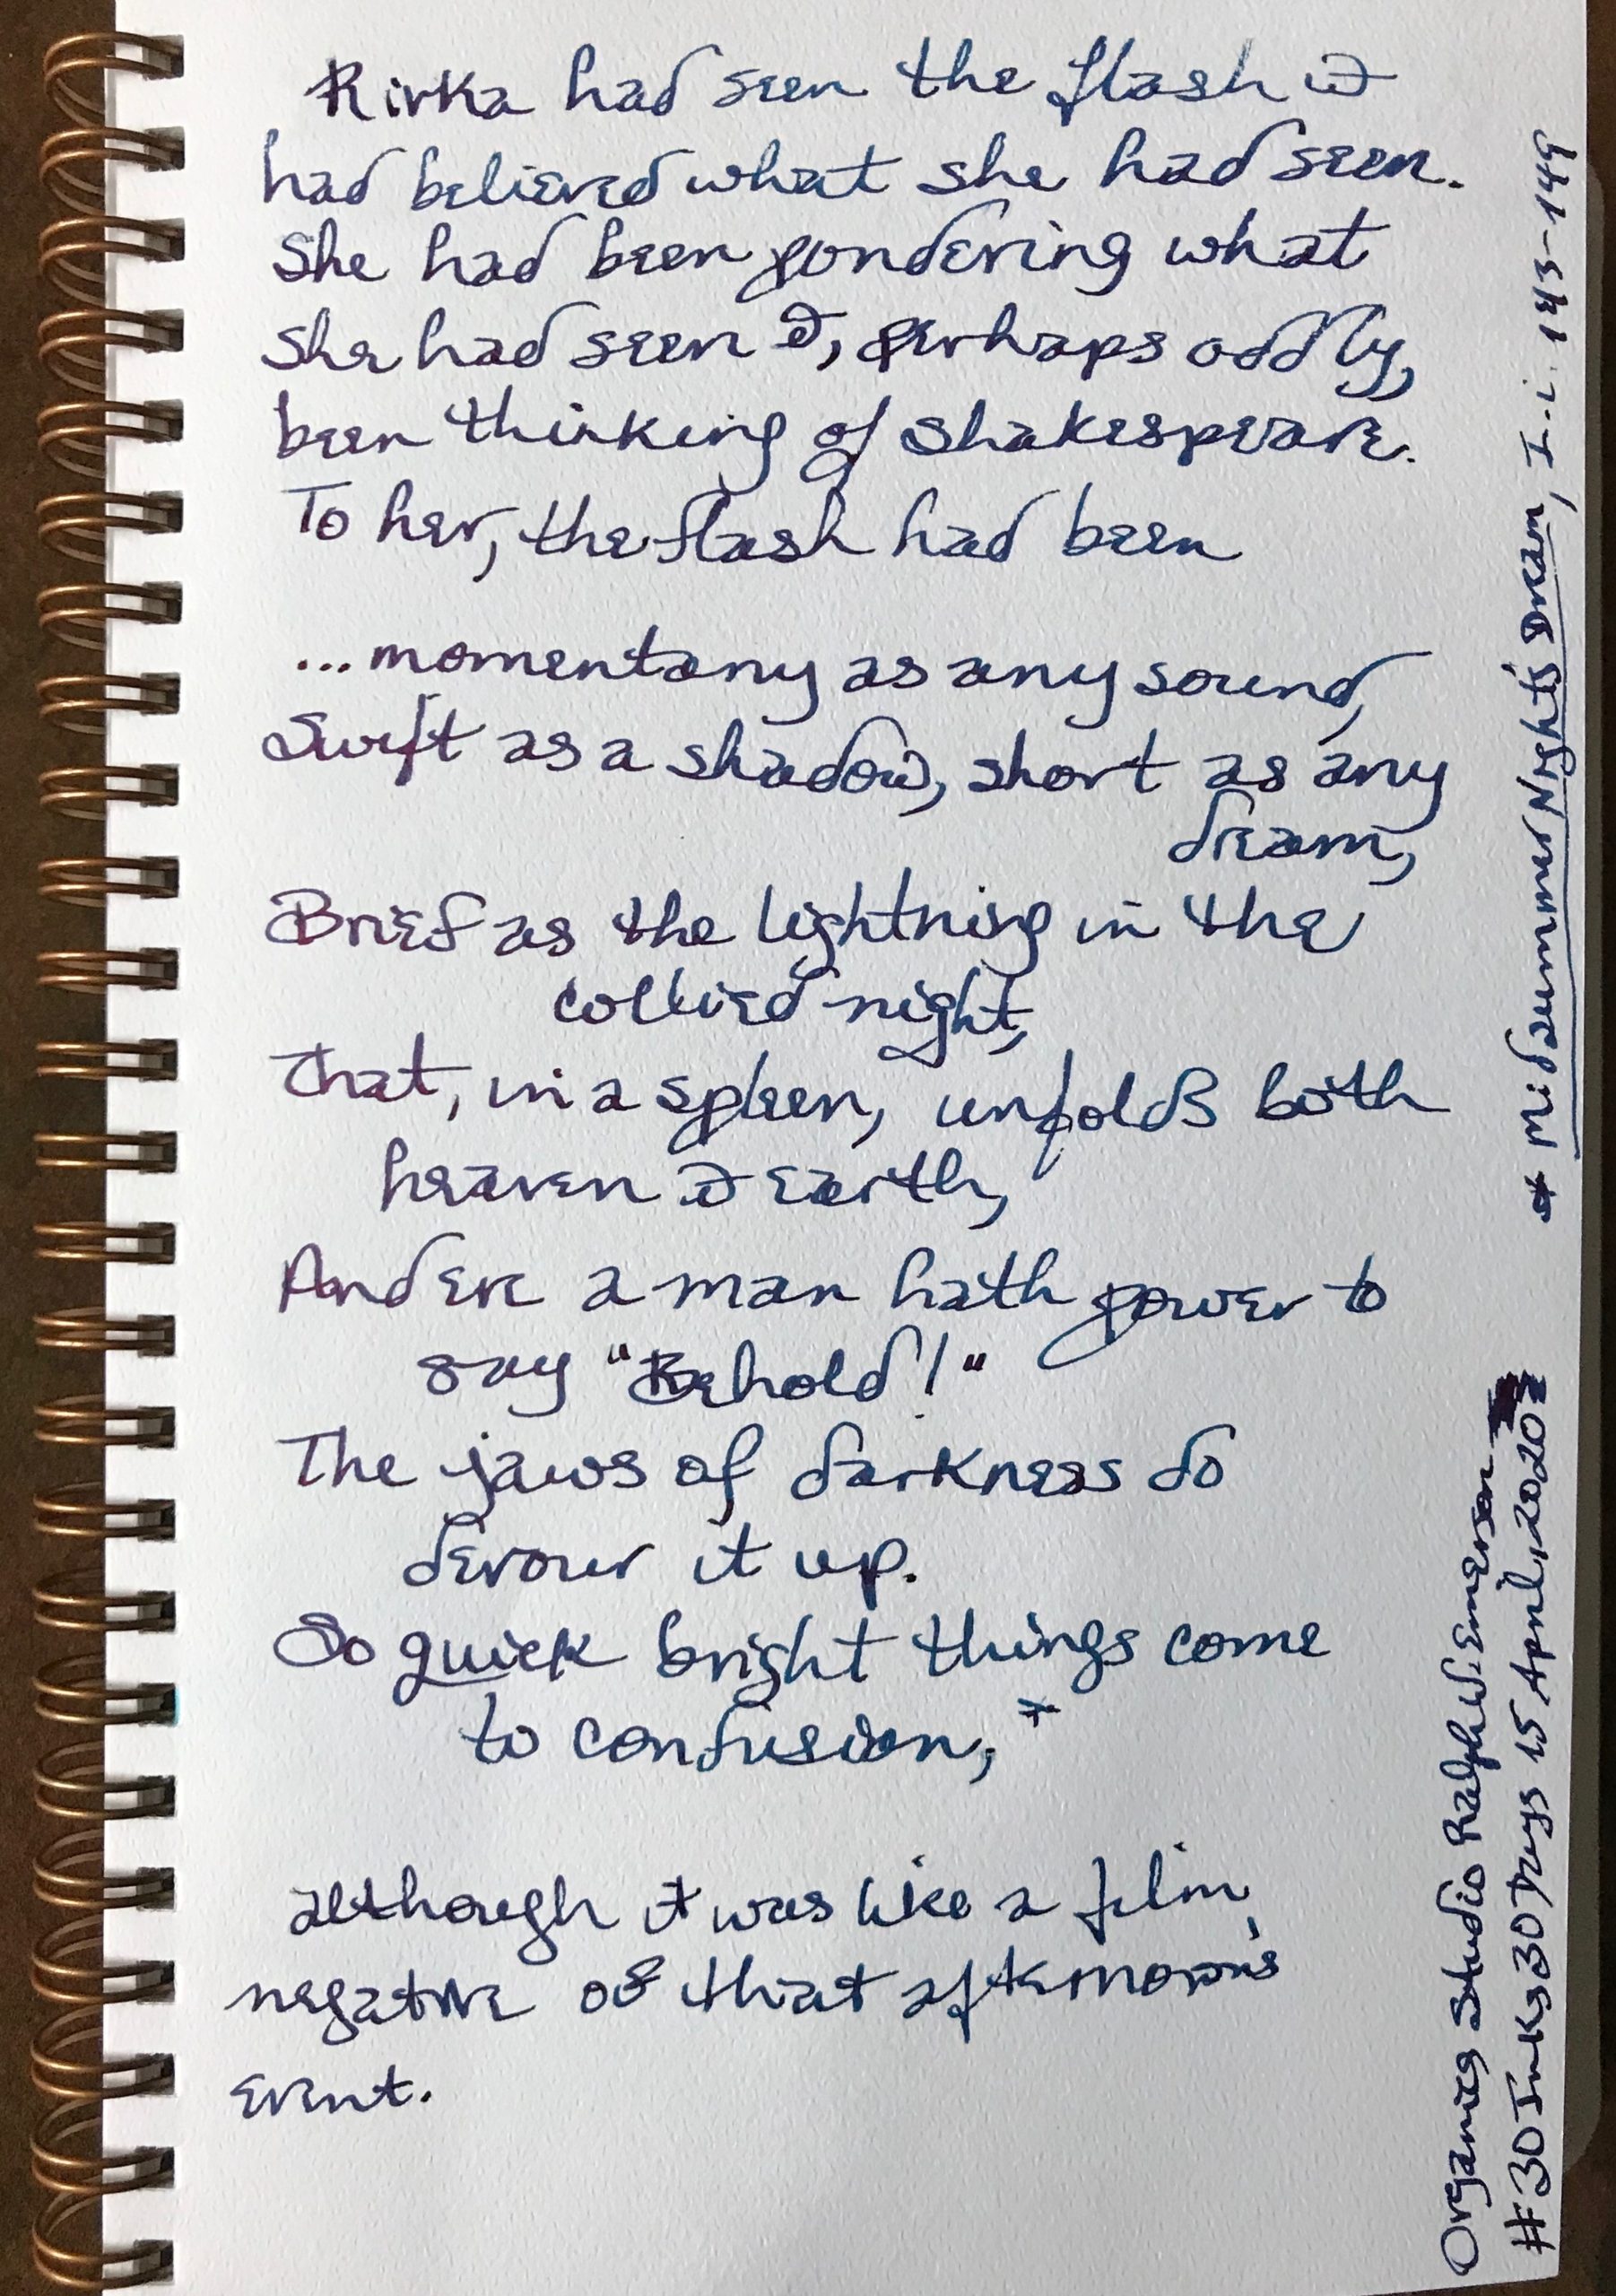 Rivka had seen the flash &
had believed what she had seen.
She had been pondering what
she had seen &, perhaps oddly,
been thinking of Shakespeare.
To her, the flash had been
...momentany as any sound,
Swift as a shadow, short as any
dream,
Brief as the lightning in the
collied night,
That, in a spleen, unfolds both
heaven & earth,
And ere a man hath power to
say "Behold!"
The jaws of darkness do
devour it up.
So quick bright things come
to confusion,*
although it was like a film
negative of that afternoon's
event.
* Midsummer Night's Dream, I.i. 143-149
Organics Studio Ralph W. Emerson
#30Inks30Days 15 April, 2020